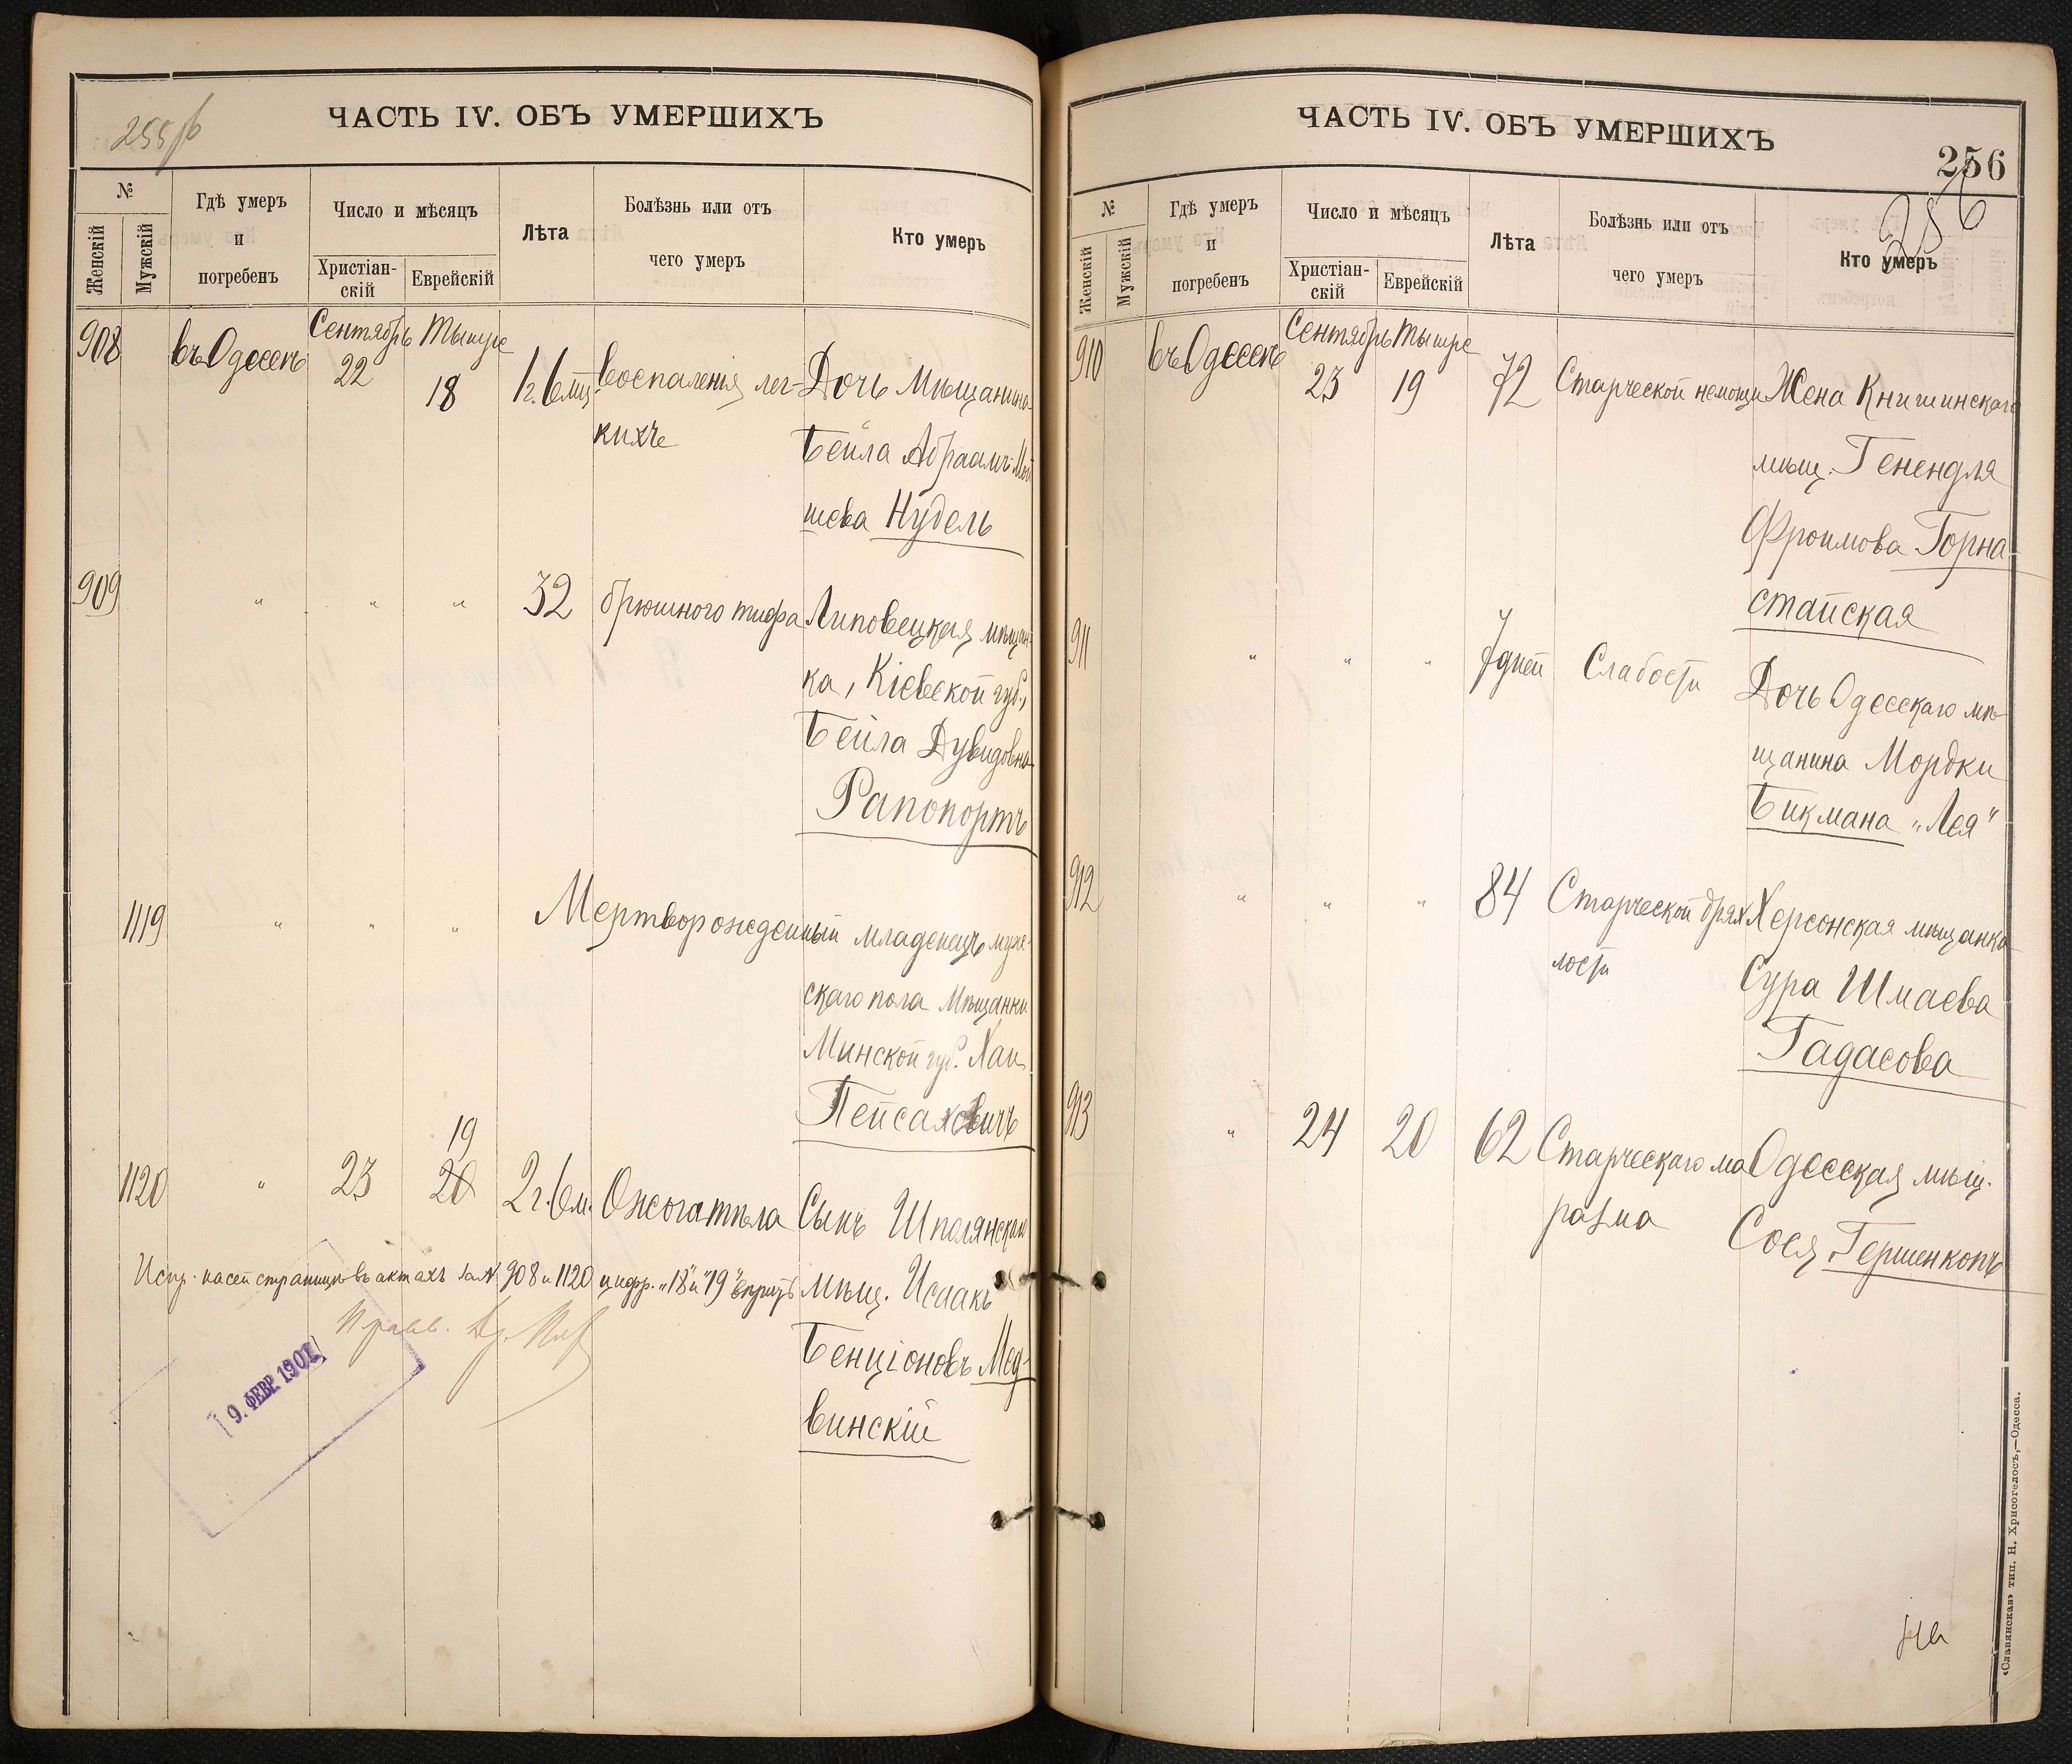 255 об
ЧАСТЬ IV. ОБЪ УМЕРШИХЪ
№
Женскій
Мужскій
Гдѣ умеръ
и
погребенъ
Число и мѣсяцъ
Христіан-
скій
Еврейскій
Лѣта
Болѣзнь или отъ
чего умеръ
Кто умеръ
908 въ Одессѣ Сентябрь 22 Тышре 18 1 г. 6 мц. воспаленія лег- Дочь Мѣщанина
кихъ Бейла Абраамъ-Мой
шева Нудель
909 " " " 32 брюшного тифа Липовецкая мѣщан-
ка, Кіевской губ.,
Бейла Дувидовна
Рапопортъ
1119 " " " Мертворожденный младенецъ муже-
скаго пола Мѣщанки
Минской губ. Хаи
Пейсаховичъ
19
1120 " 23 20 2 г. 6 м. Ожога тѣла Сынъ Шполянскаго
мѣщ. Исаакъ
Бенціоновъ Мед-
винскій
Испр. на сей страницѣ въ актахъ за № 908 и 1120 цифр. "18" и "19" вѣрить
9. ФЕВР. 1902
ЧАСТЬ IV. ОБЪ УМЕРШИХЪ
256
256
№
Женскій
Мужскій
Гдѣ умеръ
и
погребенъ
Число и мѣсяцъ
Христіан-
скій
Еврейскій
Лѣта
Болѣзнь или отъ
чего умеръ
Кто умеръ
910 въ Одессѣ Сентябрь 23 Тышре 19 72 Старческой немощи Жена Книшинскаго
мѣщ. Генендля
Фроимова Горна
стайская
911 " " " 7 дней Слабости Дочь Одесскаго мѣ-
щанина Мордки
Бикмана "Лея"
912 " " " 84 Старческой дрях Херсонская мѣщанка
лости Сура Шмаева
Гадасова
913 " 24 20 62 Старческаго ма Одесская мѣщ.
разма Сося Гершенкопъ
«Славянская» тип. Н. Хрисогелосъ,—Одесса.